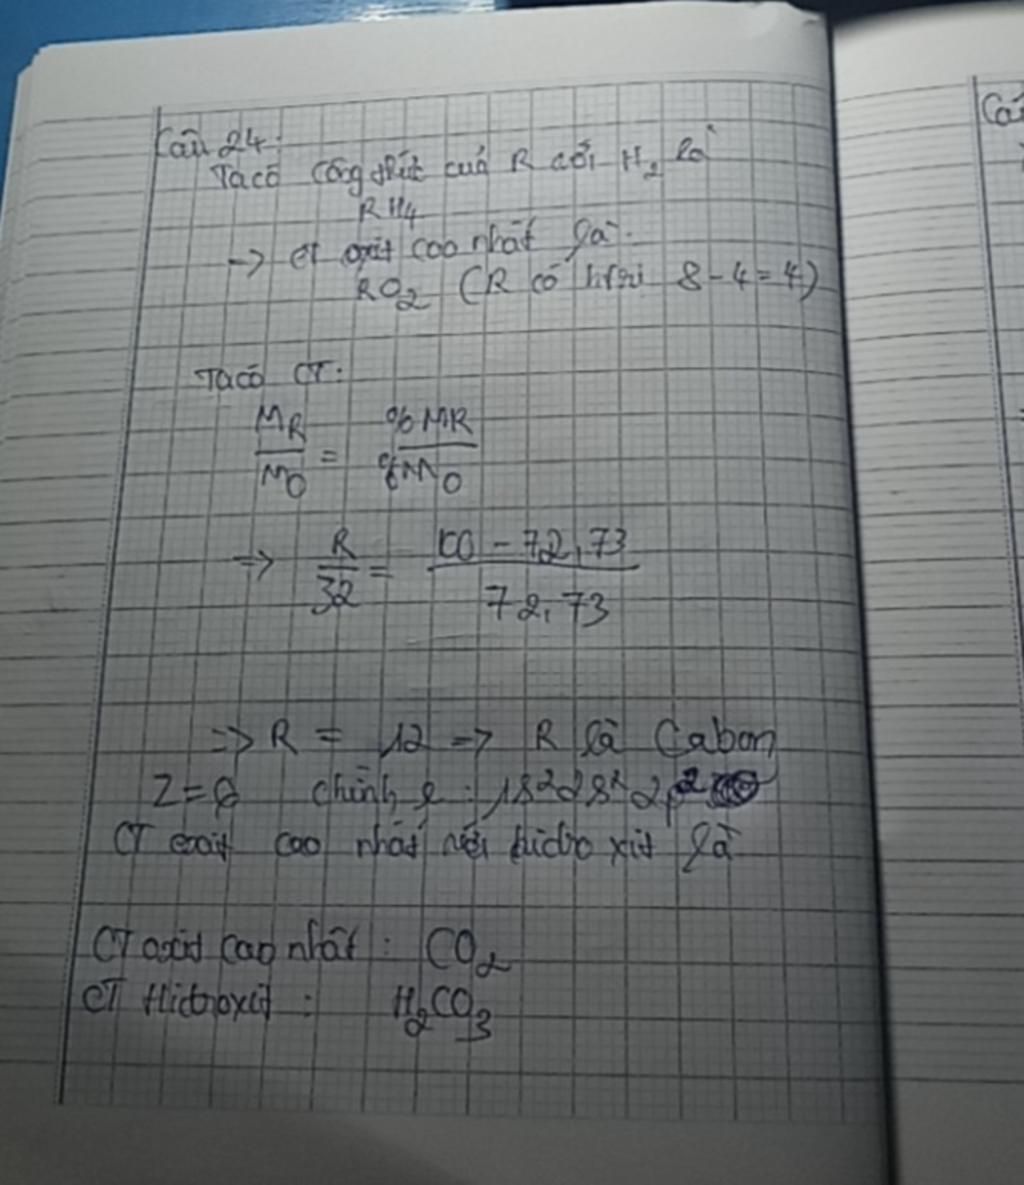 Câu 24:
Ta có công thức của R với H₂ là
RH₄
→ CT oxit cao nhất là:
RO₂ (R có htrị 8 - 4 = 4)
Ta có CT:
M_R / M_O = %M_R / %M_O
=> R / 32 = 100 - 72,73 / 72,73
=> R = 12 → R là Cabon
Z = 6 c hình e: 1s² 2s² 2p²
CT oxit cao nhất với hidroxit là
CT oxit cao nhất: CO₂
CT Hidroxit: H₂CO₃
Câ